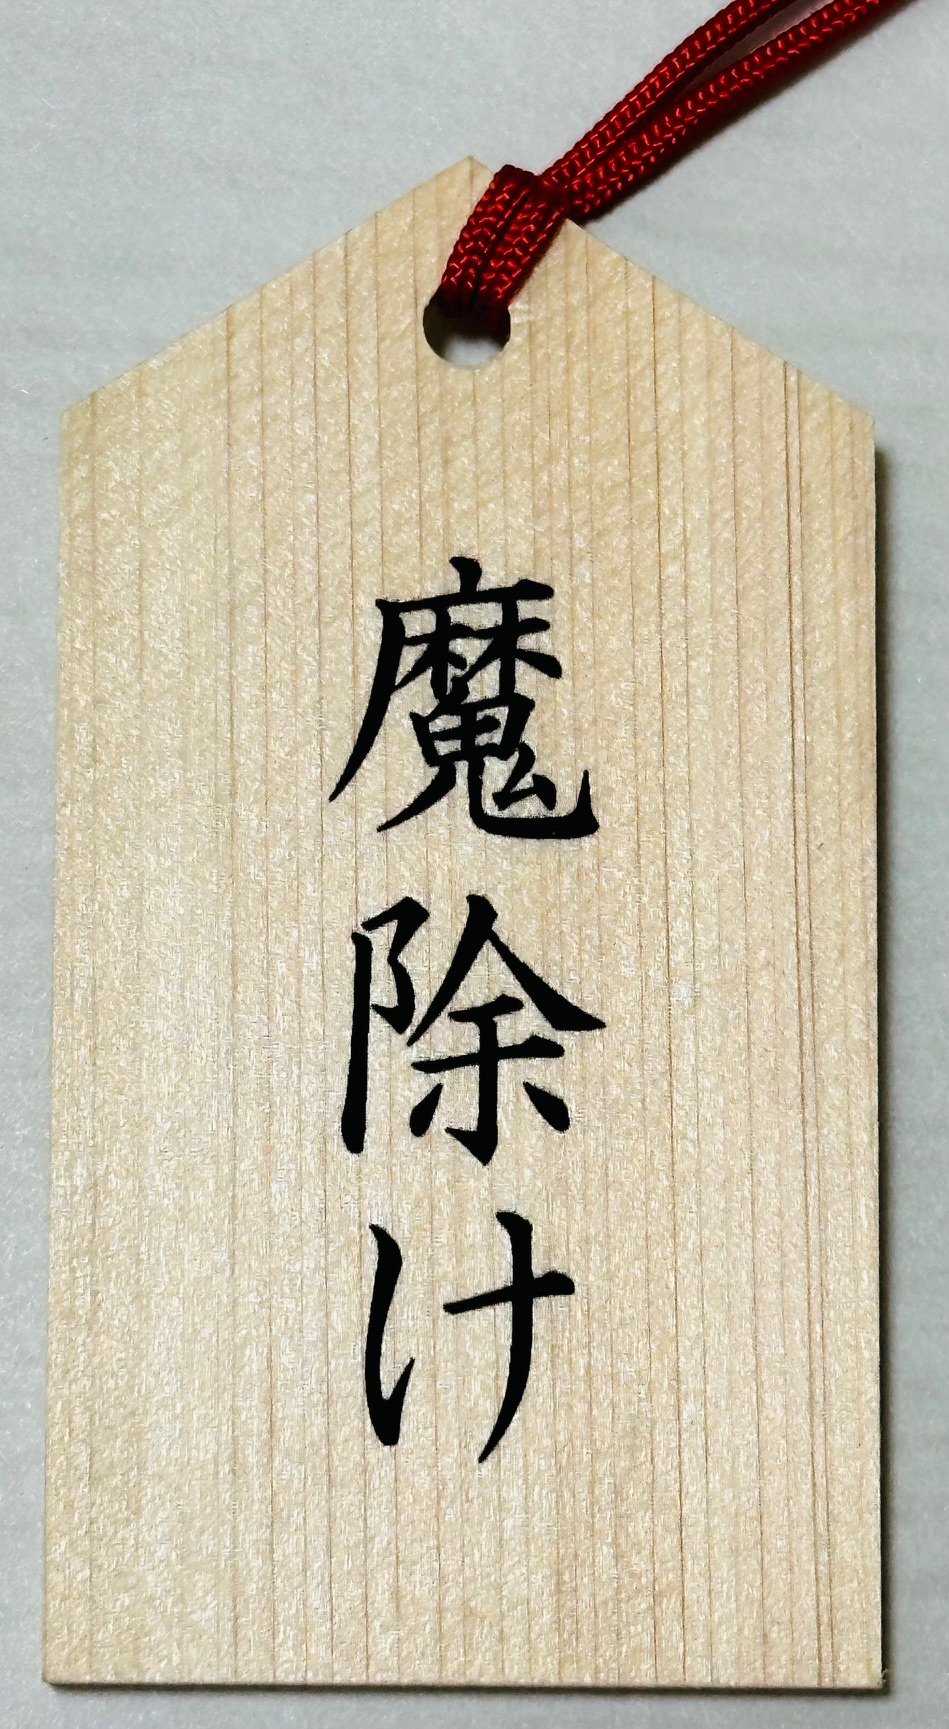 魔除け